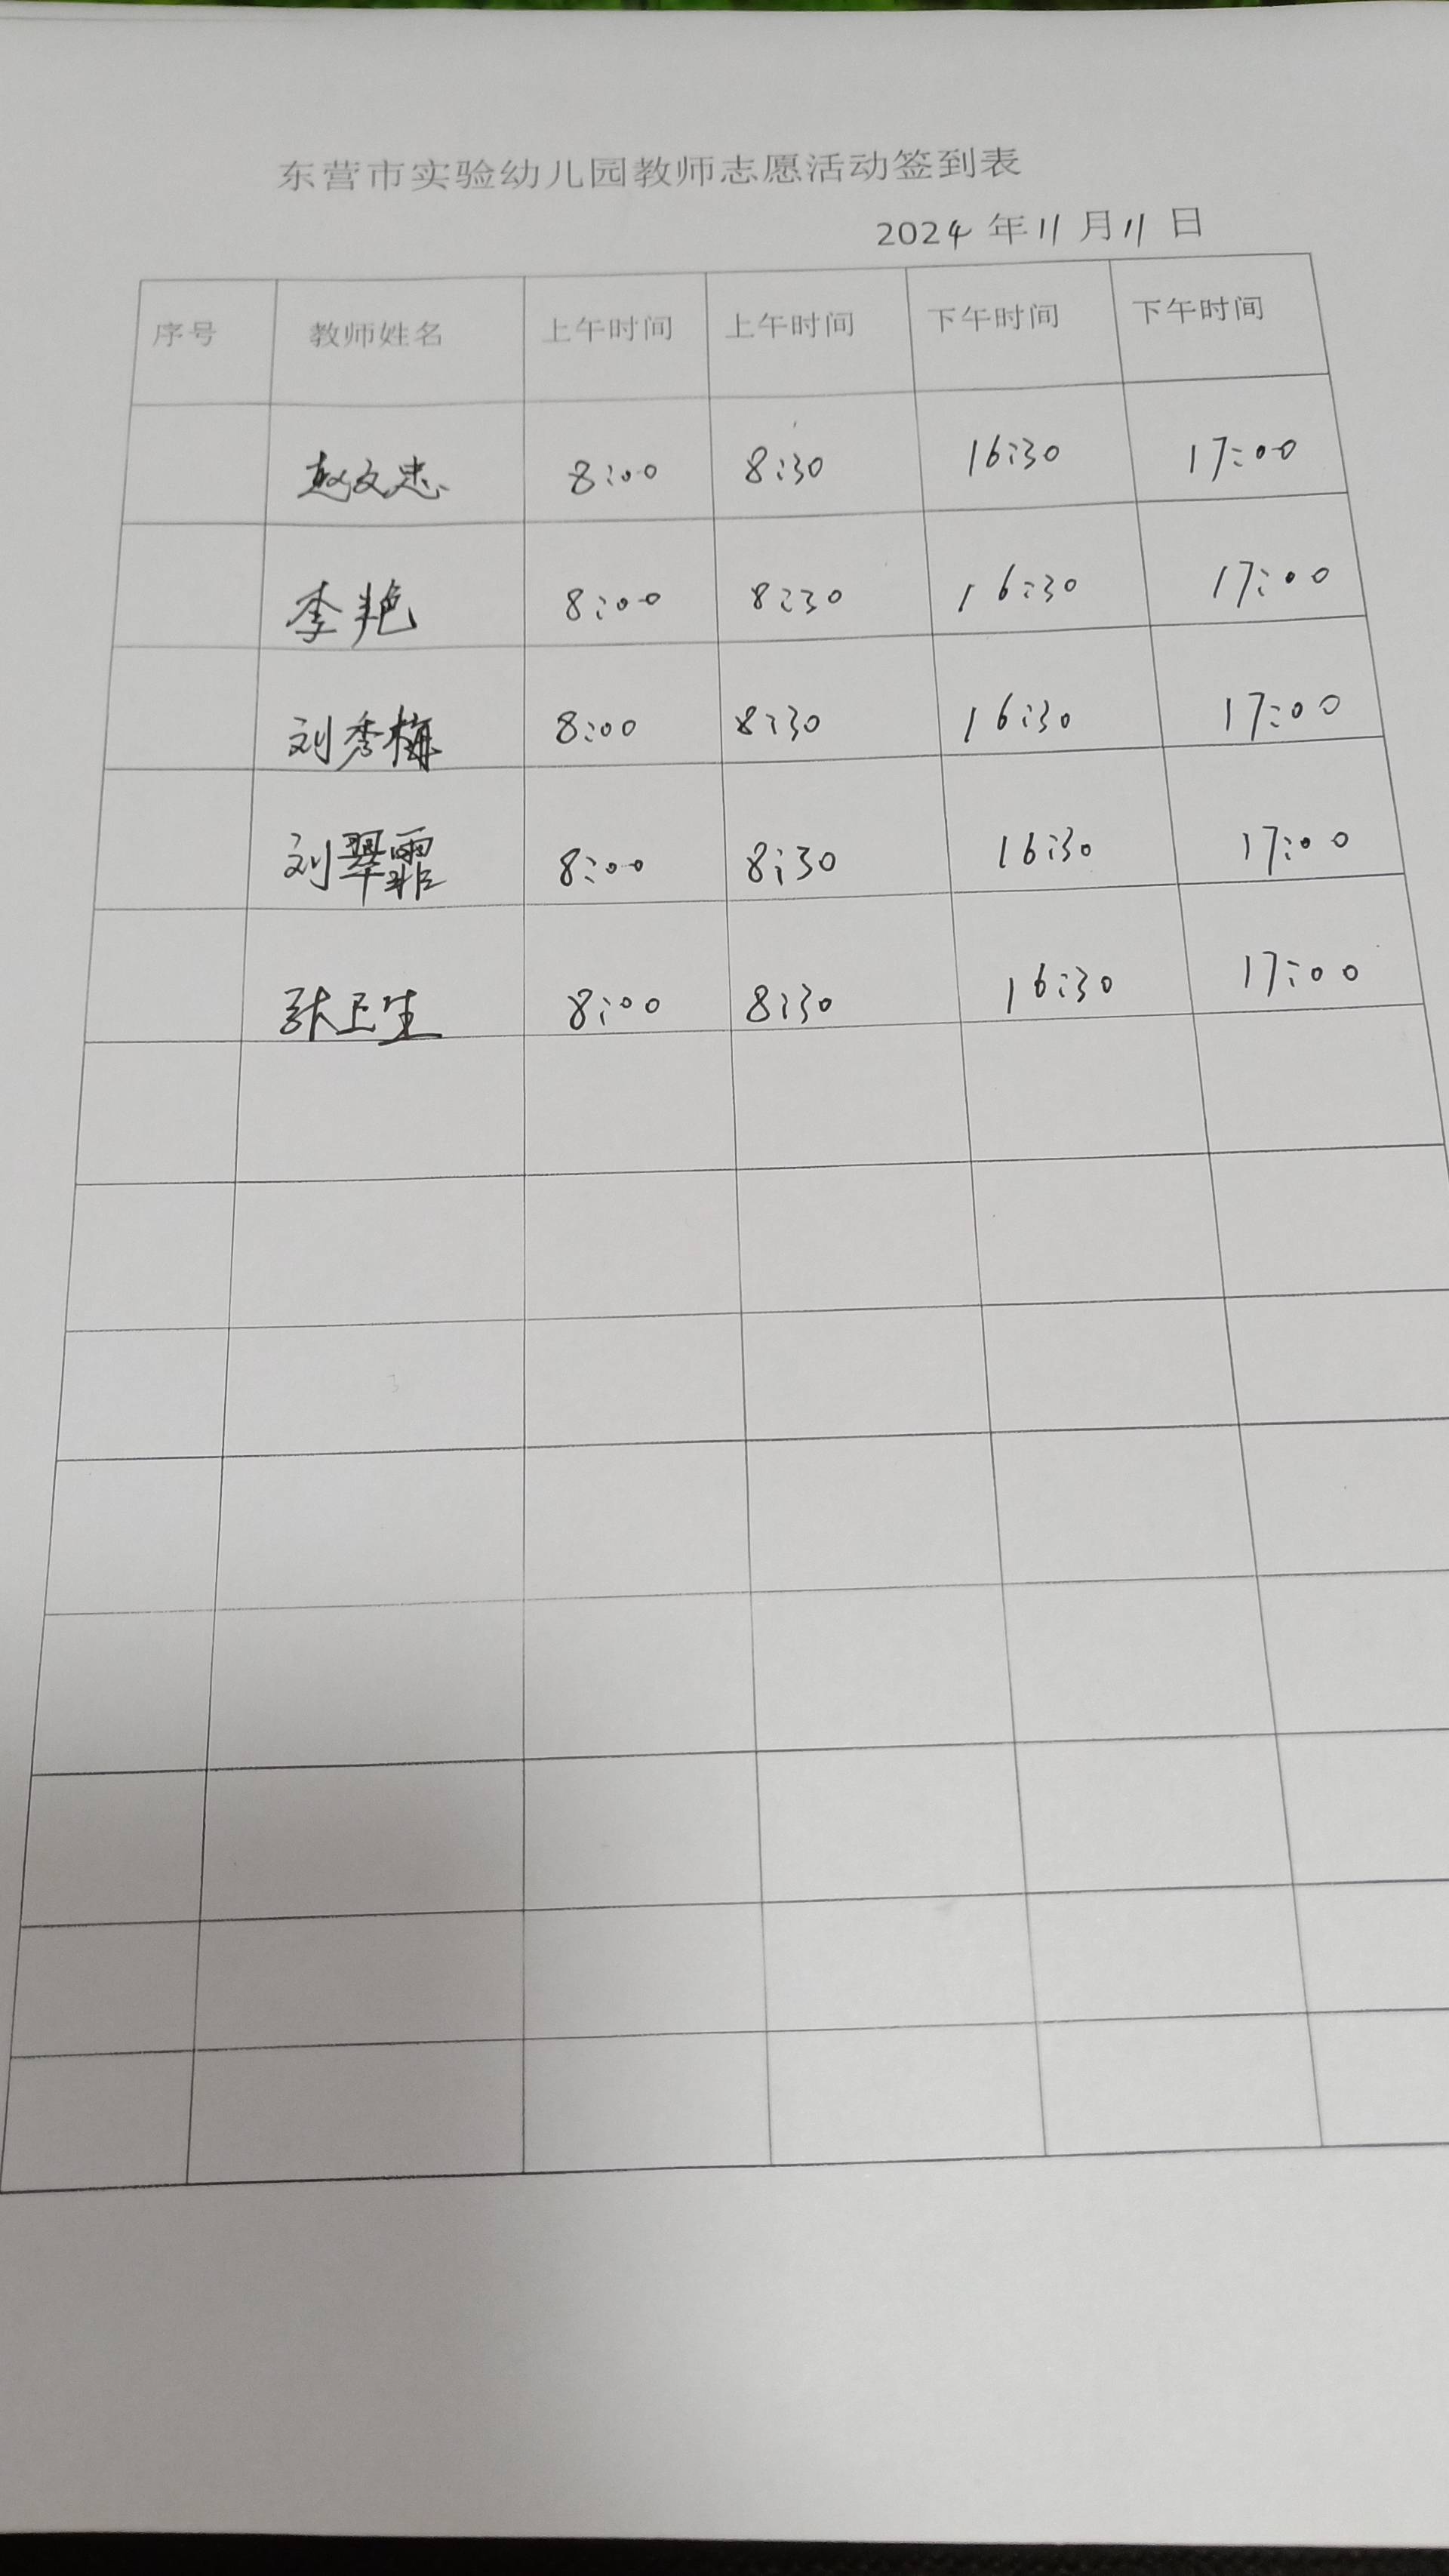 东营市实验幼儿园教师志愿活动签到表
2024 年 11 月 11 日
序号 教师姓名 上午时间 上午时间 下午时间 下午时间
赵文忠 8:00 8:30 16:30 17:00
李艳 8:00 8:30 16:30 17:00
刘秀梅 8:00 8:30 16:30 17:00
刘翠霏 8:00 8:30 16:30 17:00
张卫生 8:00 8:30 16:30 17:00